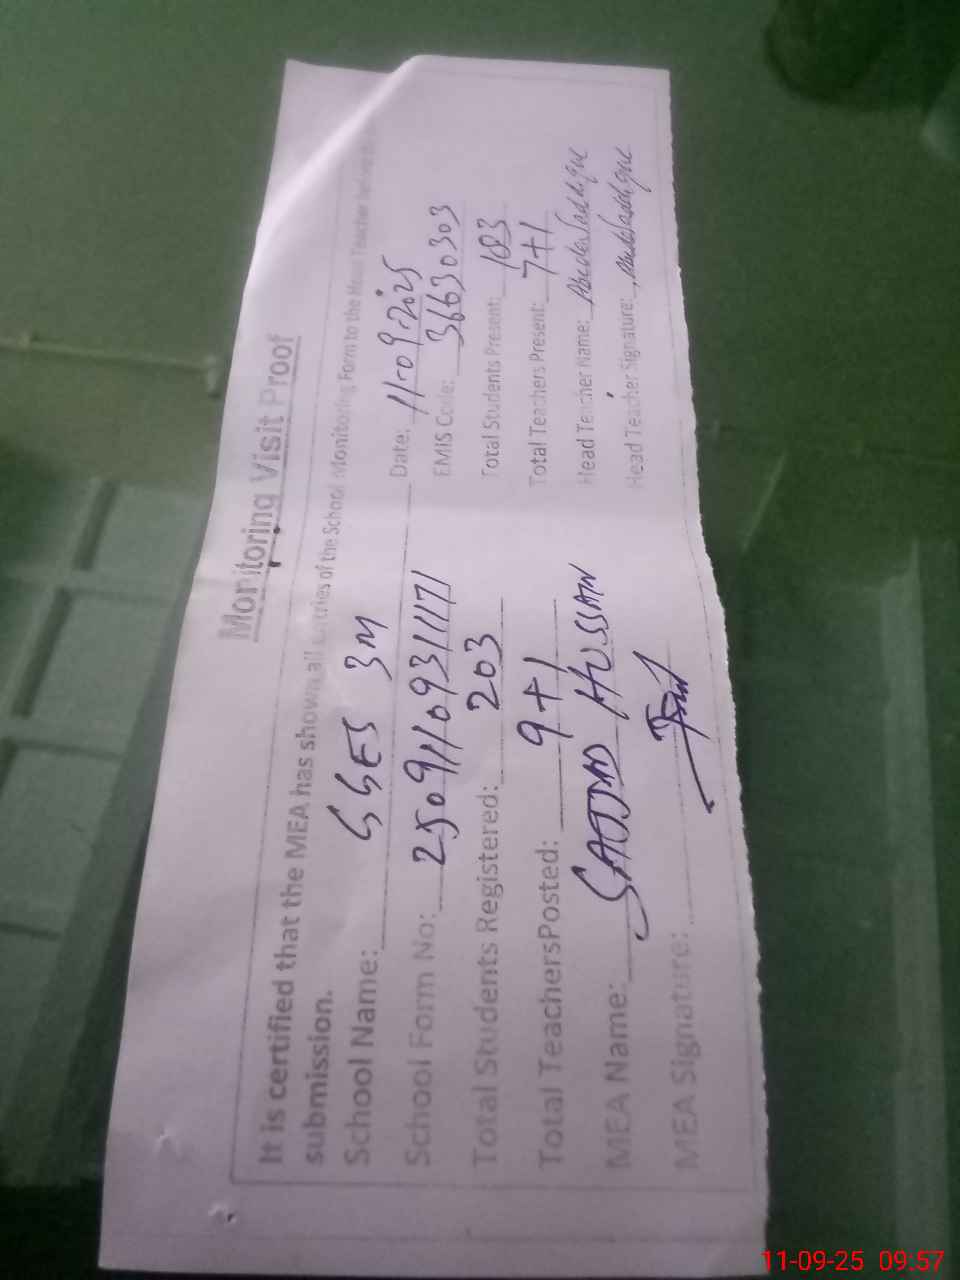 Monitoring Visit Proof
It is certified that the MEA has shown all entries of the School Monitoring Form to the Head Teacher before
submission.
School Name: GGES 3M Date: 11-09-2025
School Form No: 25091109311171 EMIS Code: 36630303
Total Students Registered: 203 Total Students Present: 183
Total TeachersPosted: 9+1 Total Teachers Present: 7+1
MEA Name: SAJJAD HUSSAIN Head Teacher Name:
MEA Signature: Head Teacher Signature:
11-09-25 09:57